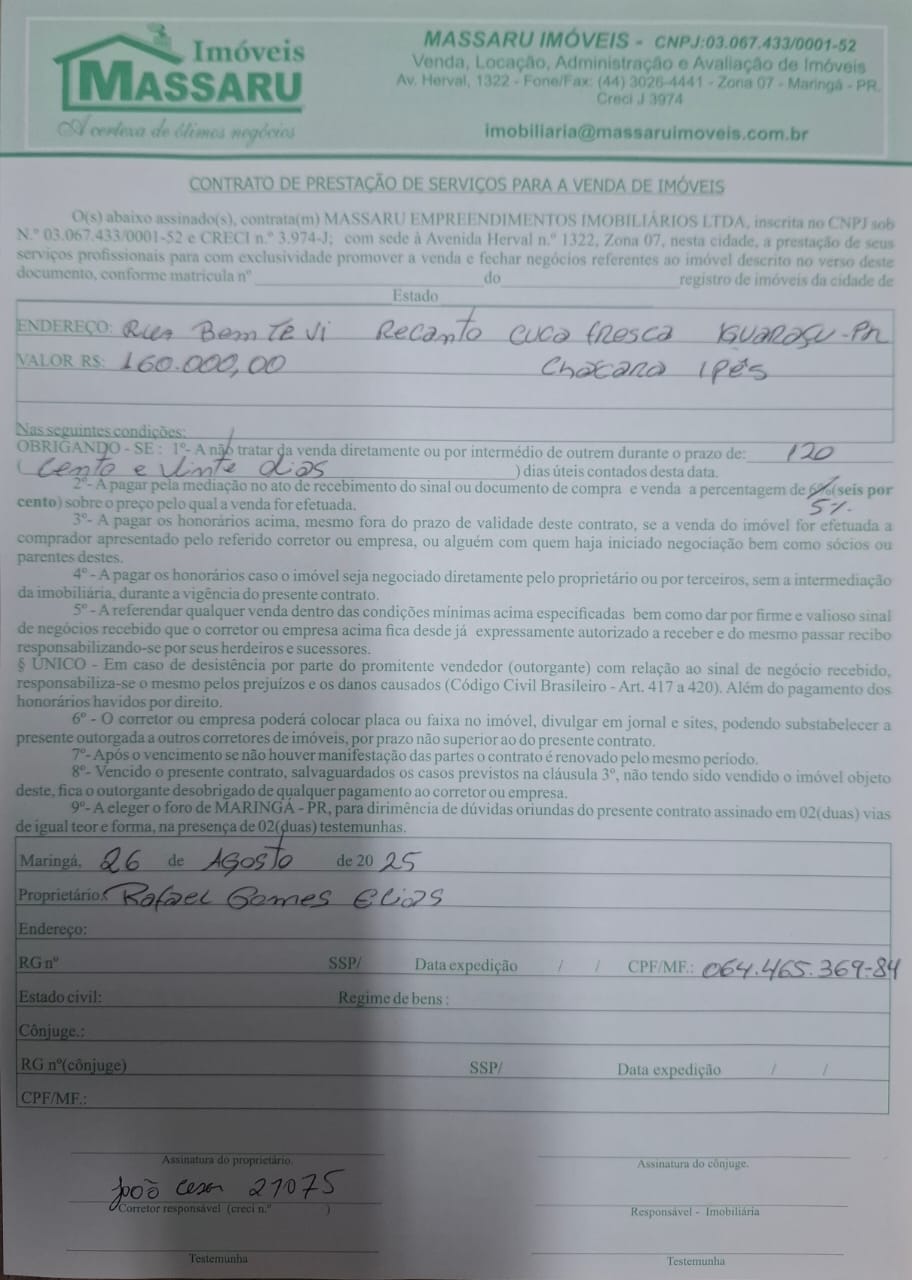 Imóveis
MASSARU
A certeza de ótimos negócios
MASSARU IMÓVEIS - CNPJ:03.067.433/0001-52
Venda, Locação, Administração e Avaliação de Imóveis
Av. Herval, 1322 - Fone/Fax: (44) 3026-4441 - Zona 07 - Maringá - PR.
Creci J 3974
imobiliaria@massaruimoveis.com.br
CONTRATO DE PRESTAÇÃO DE SERVIÇOS PARA A VENDA DE IMÓVEIS
O(s) abaixo assinado(s), contrata(m) MASSARU EMPREENDIMENTOS IMOBILIÁRIOS LTDA, inscrita no CNPJ sob
N.º 03.067.433/0001-52 e CRECI n.º 3.974-J; com sede à Avenida Herval n.º 1322, Zona 07, nesta cidade, a prestação de seus
serviços profissionais para com exclusividade promover a venda e fechar negócios referentes ao imóvel descrito no verso deste
documento, conforme matricula nº ____ do ____ registro de imóveis da cidade de
____ Estado ____
ENDEREÇO: Rua Bem TE Vi Recanto cuca fresca IGUARAÇU-PR
VALOR R$: 160.000,00 Chácara IPÊS
Nas seguintes condições:
OBRIGANDO - SE : 1º- A não tratar da venda diretamente ou por intermédio de outrem durante o prazo de: 120
( cento e vinte dias ) dias úteis contados desta data.
2º- A pagar pela mediação no ato de recebimento do sinal ou documento de compra e venda a percentagem de 6% (seis por
cento) sobre o preço pelo qual a venda for efetuada. 5%
3º- A pagar os honorários acima, mesmo fora do prazo de validade deste contrato, se a venda do imóvel for efetuada a
comprador apresentado pelo referido corretor ou empresa, ou alguém com quem haja iniciado negociação bem como sócios ou
parentes destes.
4º - A pagar os honorários caso o imóvel seja negociado diretamente pelo proprietário ou por terceiros, sem a intermediação
da imobiliária, durante a vigência do presente contrato.
5º - A referendar qualquer venda dentro das condições mínimas acima especificadas bem como dar por firme e valioso sinal
de negócios recebido que o corretor ou empresa acima fica desde já expressamente autorizado a receber e do mesmo passar recibo
responsabilizando-se por seus herdeiros e sucessores.
§ ÚNICO - Em caso de desistência por parte do promitente vendedor (outorgante) com relação ao sinal de negócio recebido,
responsabiliza-se o mesmo pelos prejuízos e os danos causados (Código Civil Brasileiro - Art. 417 a 420). Além do pagamento dos
honorários havidos por direito.
6º - O corretor ou empresa poderá colocar placa ou faixa no imóvel, divulgar em jornal e sites, podendo substabelecer a
presente outorgada a outros corretores de imóveis, por prazo não superior ao do presente contrato.
7º- Após o vencimento se não houver manifestação das partes o contrato é renovado pelo mesmo período.
8º- Vencido o presente contrato, salvaguardados os casos previstos na cláusula 3º, não tendo sido vendido o imóvel objeto
deste, fica o outorgante desobrigado de qualquer pagamento ao corretor ou empresa.
9º- A eleger o foro de MARINGÁ - PR, para dirimência de dúvidas oriundas do presente contrato assinado em 02(duas) vias
de igual teor e forma, na presença de 02(duas) testemunhas.
Maringá, 26 de Agosto de 20 25
Proprietário: Rafael Gomes Elias
Endereço:
RG nº SSP/ Data expedição / / CPF/MF.: 064.465.369-84
Estado civil: Regime de bens :
Cônjuge.:
RG nº(cônjuge) SSP/ Data expedição / /
CPF/MF.:
Assinatura do proprietário. Assinatura do cônjuge.
João Cesar 21075
Corretor responsável (creci n.º ) Responsável - Imobiliária
Testemunha Testemunha